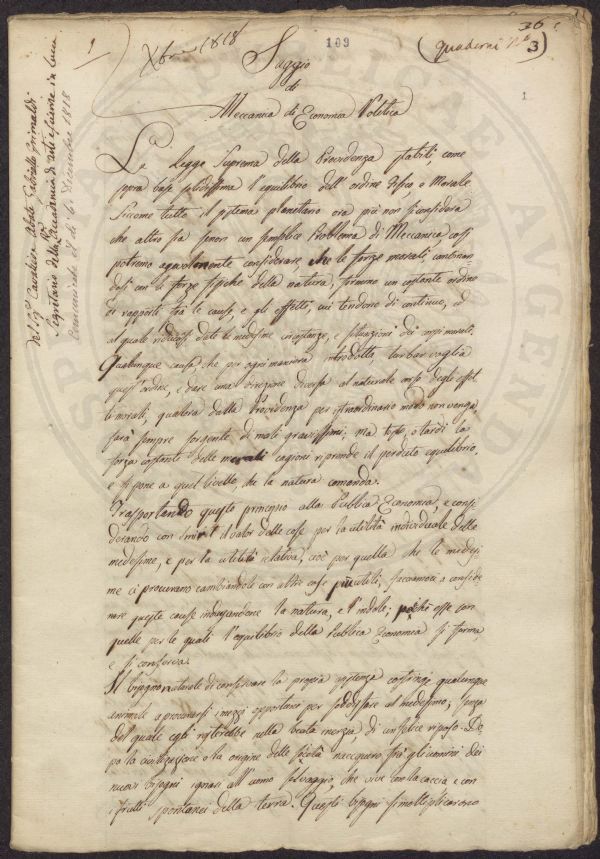 36
1
Xbre 1818
109
(quaderni N°
3)
1
Saggio
di
Meccanica di Economia Politica
Del Sigr Cavaliere Abate Gabriello Grimaldi
Segretario della Accademia di arti e scienze in Lucca
Comunicato il dì 6. Dicembre 1818
La Legge Suprema della Providenza stabilì, come
sopra base solidissima l'equilibrio dell'ordine Fisico, o Morale
Siccome tutto il sistema planitario ora più non si considera
che altro sia senon un semplice Problema di Meccanica, così
potremo egualmente considerare, che le forze morali, combinan
dosi con le forze fisiche della natura, formino un costante ordine
di rapporti frà le cause, e gli effetti, cui tendono di continuo, ed
al quale riduconsi date le medesime circostanze, e situazioni dei corpi morali.
Qualunque causa che per ogni maniera introdotta, turbar voglia
quest'ordine, e dare una direzione diversa al naturale corso degli effet
ti morali, qualora dalla Providenza per estraordinario modo non venga,
sarà sempre sorgente di mali gravissimi; ma tosto, o tardi la
forza costante delle morali cagioni riprende il perduto equilibrio,
e si pone a quel livello, che la natura comanda.
Trasportando questo principio alla Publica Economia, e consi
derando con il valor delle cose per la utilità individuale delle
medesime, e per la utilità relativa, cioè per quella che le medesi
me ci procurano cambiandole con altre cose più utili, facciamoci a conside
rare queste cause indagandone la natura, e l'indole; poichè esse son
quelle per le quali l'equilibrio della Publica Economia si forma,
e si conserva.
Il bisogno naturale di conservare la propria esistenza costringe qualunque
animale a procurarsi i mezzi opportuni per soddisfare al medesimo; senza
del quale egli resterebbe nella beata inerzia di un felice riposo. Do
po la civilizzazione o la origine delle società nacquero frà gli uomini dei
nuovi bisogni ignoti all'uomo selvaggio, che vive con la caccia, e con
i frutti spontanei della terra. Questi bisogni si moltiplicarono